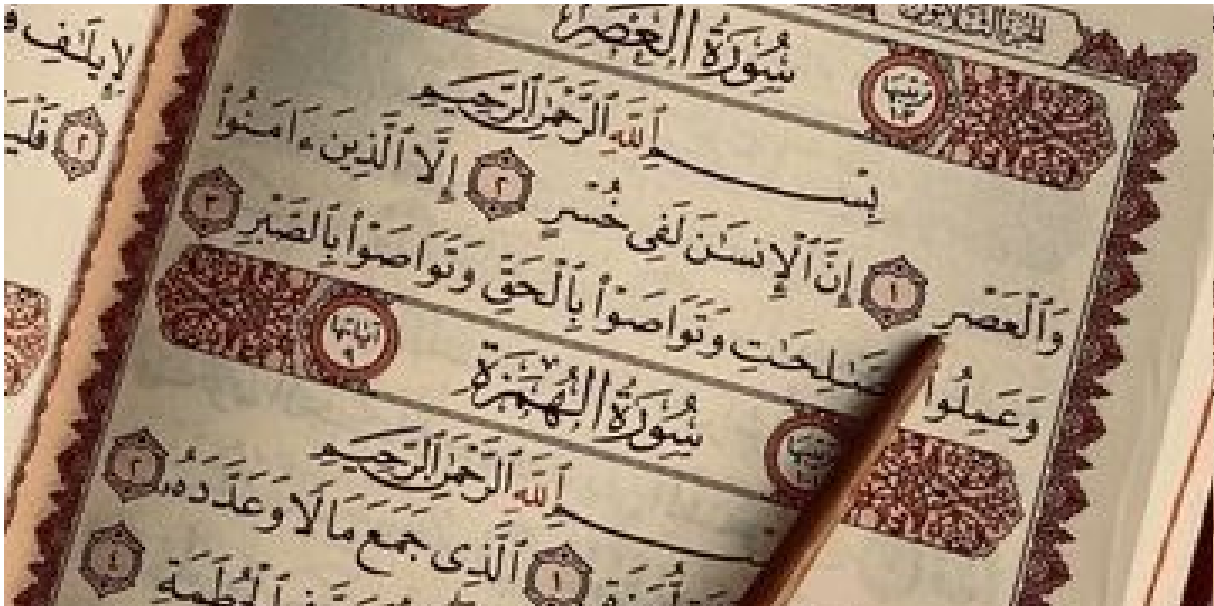 سُورَةُ الْعَصْرِ
بِسْمِ ٱللَّهِ ٱلرَّحْمَٰنِ ٱلرَّحِيمِ
وَٱلْعَصْرِ ١ إِنَّ ٱلْإِنسَٰنَ لَفِى خُسْرٍ ٢ إِلَّا ٱلَّذِينَ ءَامَنُوا۟
وَعَمِلُوا۟ ٱلصَّٰلِحَٰتِ وَتَوَاصَوْا۟ بِٱلْحَقِّ وَتَوَاصَوْا۟ بِٱلصَّبْرِ ٣
سُورَةُ الْهُمَزَةِ آيَاتُهَا ٩
بِسْمِ ٱللَّهِ ٱلرَّحْمَٰنِ ٱلرَّحِيمِ
١ ٱلَّذِى جَمَعَ مَالًا وَعَدَّدَهُۥ ٢
ٱلْحُطَمَةِ ٤
لِإِيلَٰفِ
٢